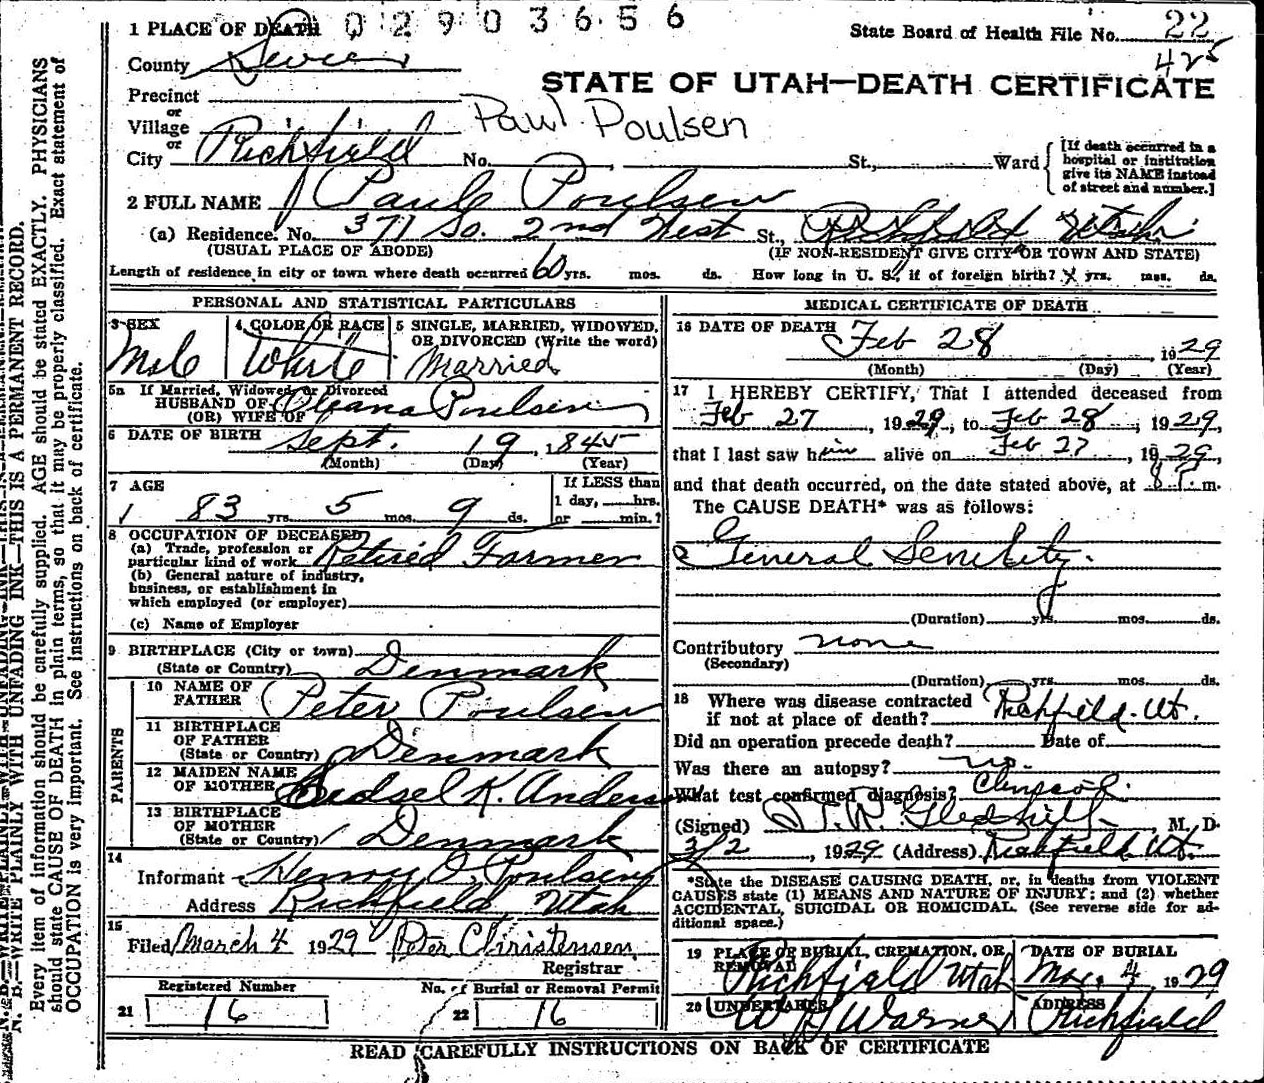 0 2 9 0 3 6 5 6
1 PLACE OF DEATH
State Board of Health File No. 22
425
County Sevier
STATE OF UTAH—DEATH CERTIFICATE
Precinct
or
Village
Paul Poulsen
or
City Richfield No. St., Ward
[If death occurred in a
hospital or institution
give its NAME instead
of street and number.]
2 FULL NAME Paul Poulsen
(a) Residence. No. 371 So. 2nd West St., Richfield Utah
(USUAL PLACE OF ABODE) (IF NON-RESIDENT GIVE CITY OR TOWN AND STATE)
Length of residence in city or town where death occurred 60 yrs. mos. ds. How long in U. S., if of foreign birth? x yrs. mos. ds.
PERSONAL AND STATISTICAL PARTICULARS
3 SEX 4 COLOR OR RACE 5 SINGLE, MARRIED, WIDOWED,
OR DIVORCED (Write the word)
Male White Married
5a If Married, Widowed or Divorced
HUSBAND OF
(OR) WIFE OF Poulsen
6 DATE OF BIRTH Sept. 19, 1845
(Month) (Day) (Year)
7 AGE
83 yrs. 5 mos. 9 ds.
If LESS than
1 day, hrs.
or min.?
8 OCCUPATION OF DECEASED
(a) Trade, profession or
particular kind of work Retired Farmer
(b) General nature of industry,
business, or establishment in
which employed (or employer)
(c) Name of Employer
9 BIRTHPLACE (City or town)
(State or Country) Denmark
PARENTS
10 NAME OF
FATHER Peter Poulsen
11 BIRTHPLACE
OF FATHER
(State or Country) Denmark
12 MAIDEN NAME
OF MOTHER K. Anderson
13 BIRTHPLACE
OF MOTHER
(State or Country) Denmark
14
Informant Henry O. Poulsen
Address Richfield Utah
15
Filed March 4 1929 Peter Christensen
Registrar
Registered Number No. of Burial or Removal Permit
21 16 22 16
MEDICAL CERTIFICATE OF DEATH
16 DATE OF DEATH Feb 28 1929
(Month) (Day) (Year)
17 I HEREBY CERTIFY, That I attended deceased from
Feb 27, 1929, to Feb 28, 1929,
that I last saw him alive on Feb 27, 1929,
and that death occurred, on the date stated above, at 8 P. m.
The CAUSE DEATH* was as follows:
General Senility.
(Duration) yrs. mos. ds.
Contributory none
(Secondary)
(Duration) yrs. mos. ds.
18 Where was disease contracted
if not at place of death? Richfield Ut.
Did an operation precede death? Date of
Was there an autopsy? no.
What test confirmed diagnosis? Clinical.
(Signed) Gledhill, M. D.
3/2, 1929 (Address) Richfield Ut.
*State the DISEASE CAUSING DEATH, or, in deaths from VIOLENT
CAUSES state (1) MEANS AND NATURE OF INJURY; and (2) whether
ACCIDENTAL, SUICIDAL OR HOMICIDAL. (See reverse side for ad-
ditional space.)
19 PLACE OF BURIAL, CREMATION, OR
REMOVAL Richfield Utah
DATE OF BURIAL
Mar. 4 1929
20 UNDERTAKER ADDRESS
Warner Richfield
READ CAREFULLY INSTRUCTIONS ON BACK OF CERTIFICATE
N. B.—WRITE PLAINLY WITH UNFADING INK—THIS IS A PERMANENT RECORD.
Every item of information should be carefully supplied. AGE should be stated EXACTLY. PHYSICIANS
should state CAUSE OF DEATH in plain terms, so that it may be properly classified. Exact statement of
OCCUPATION is very important. See instructions on back of certificate.